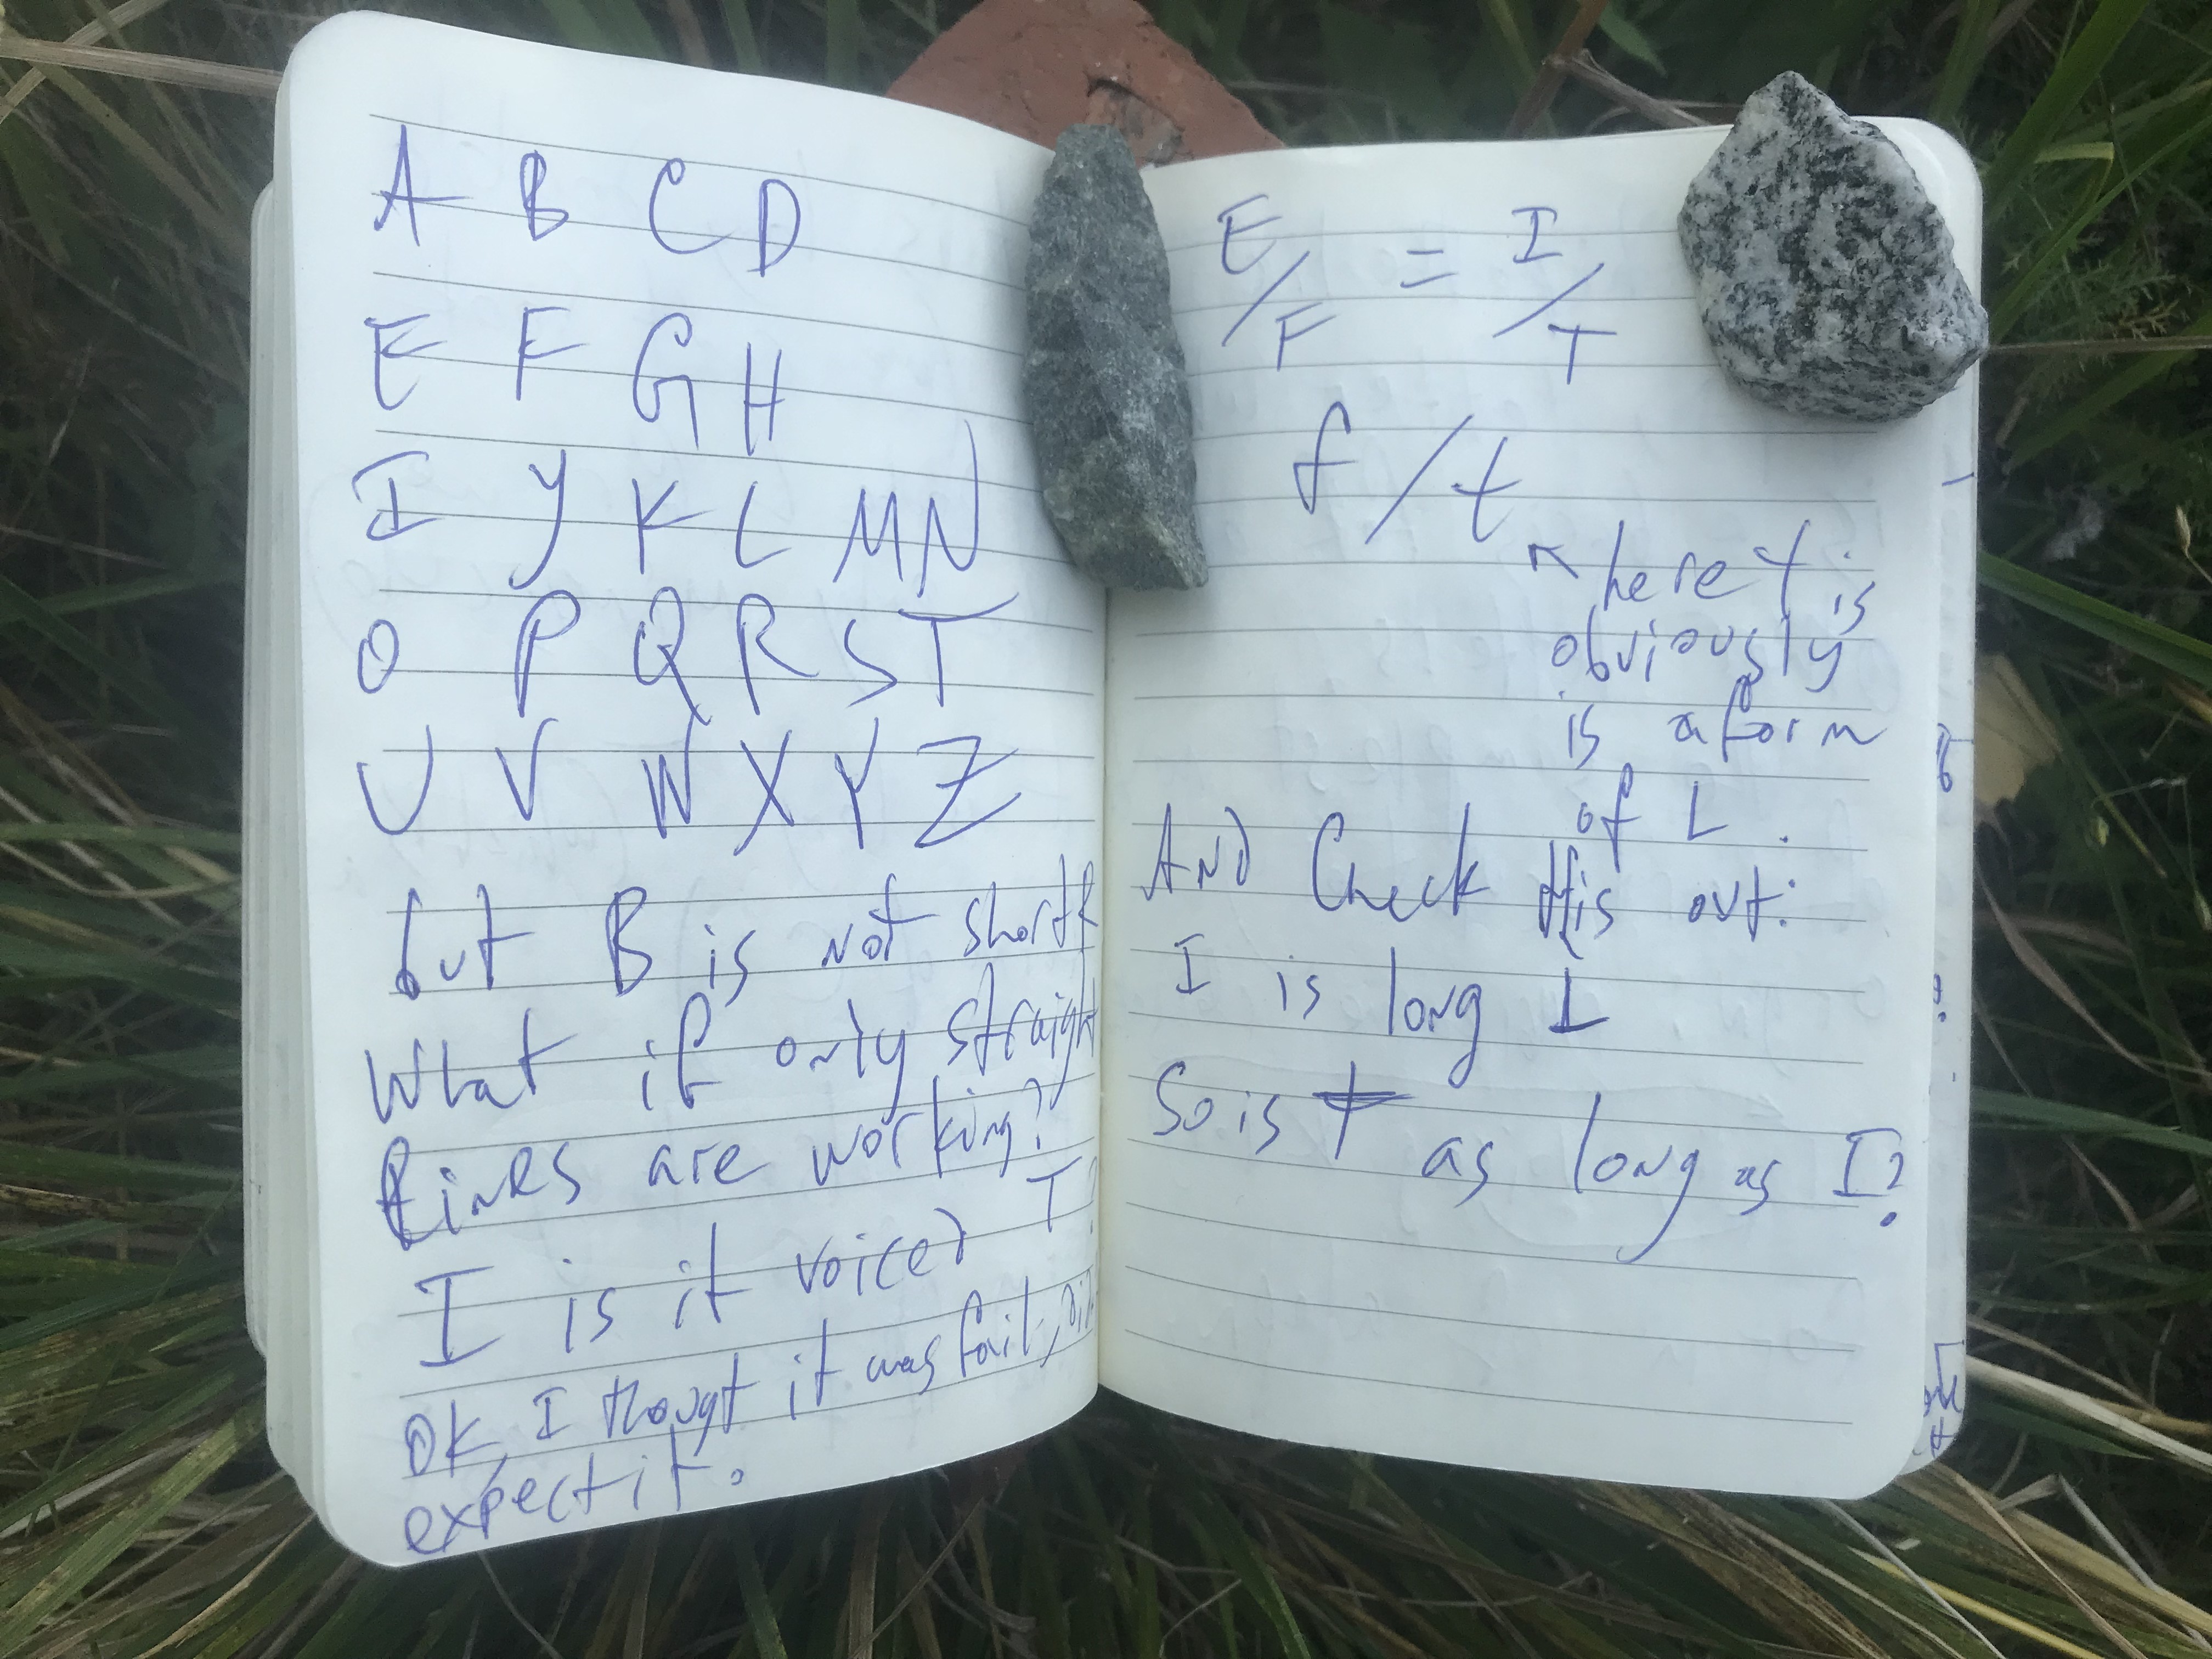 A B C D
E F G H
I y K L M N
O P Q R S T
U V W X Y Z
but B is not short R
What if only straight
lines are working?
I is it voiced T
OK I thougt it was fail, Did
expect it.
E/F = I/T
f/t
↖ here t is
obviously
is a form
of L.
AND Check this out:
I is long L
So is t as long as I?